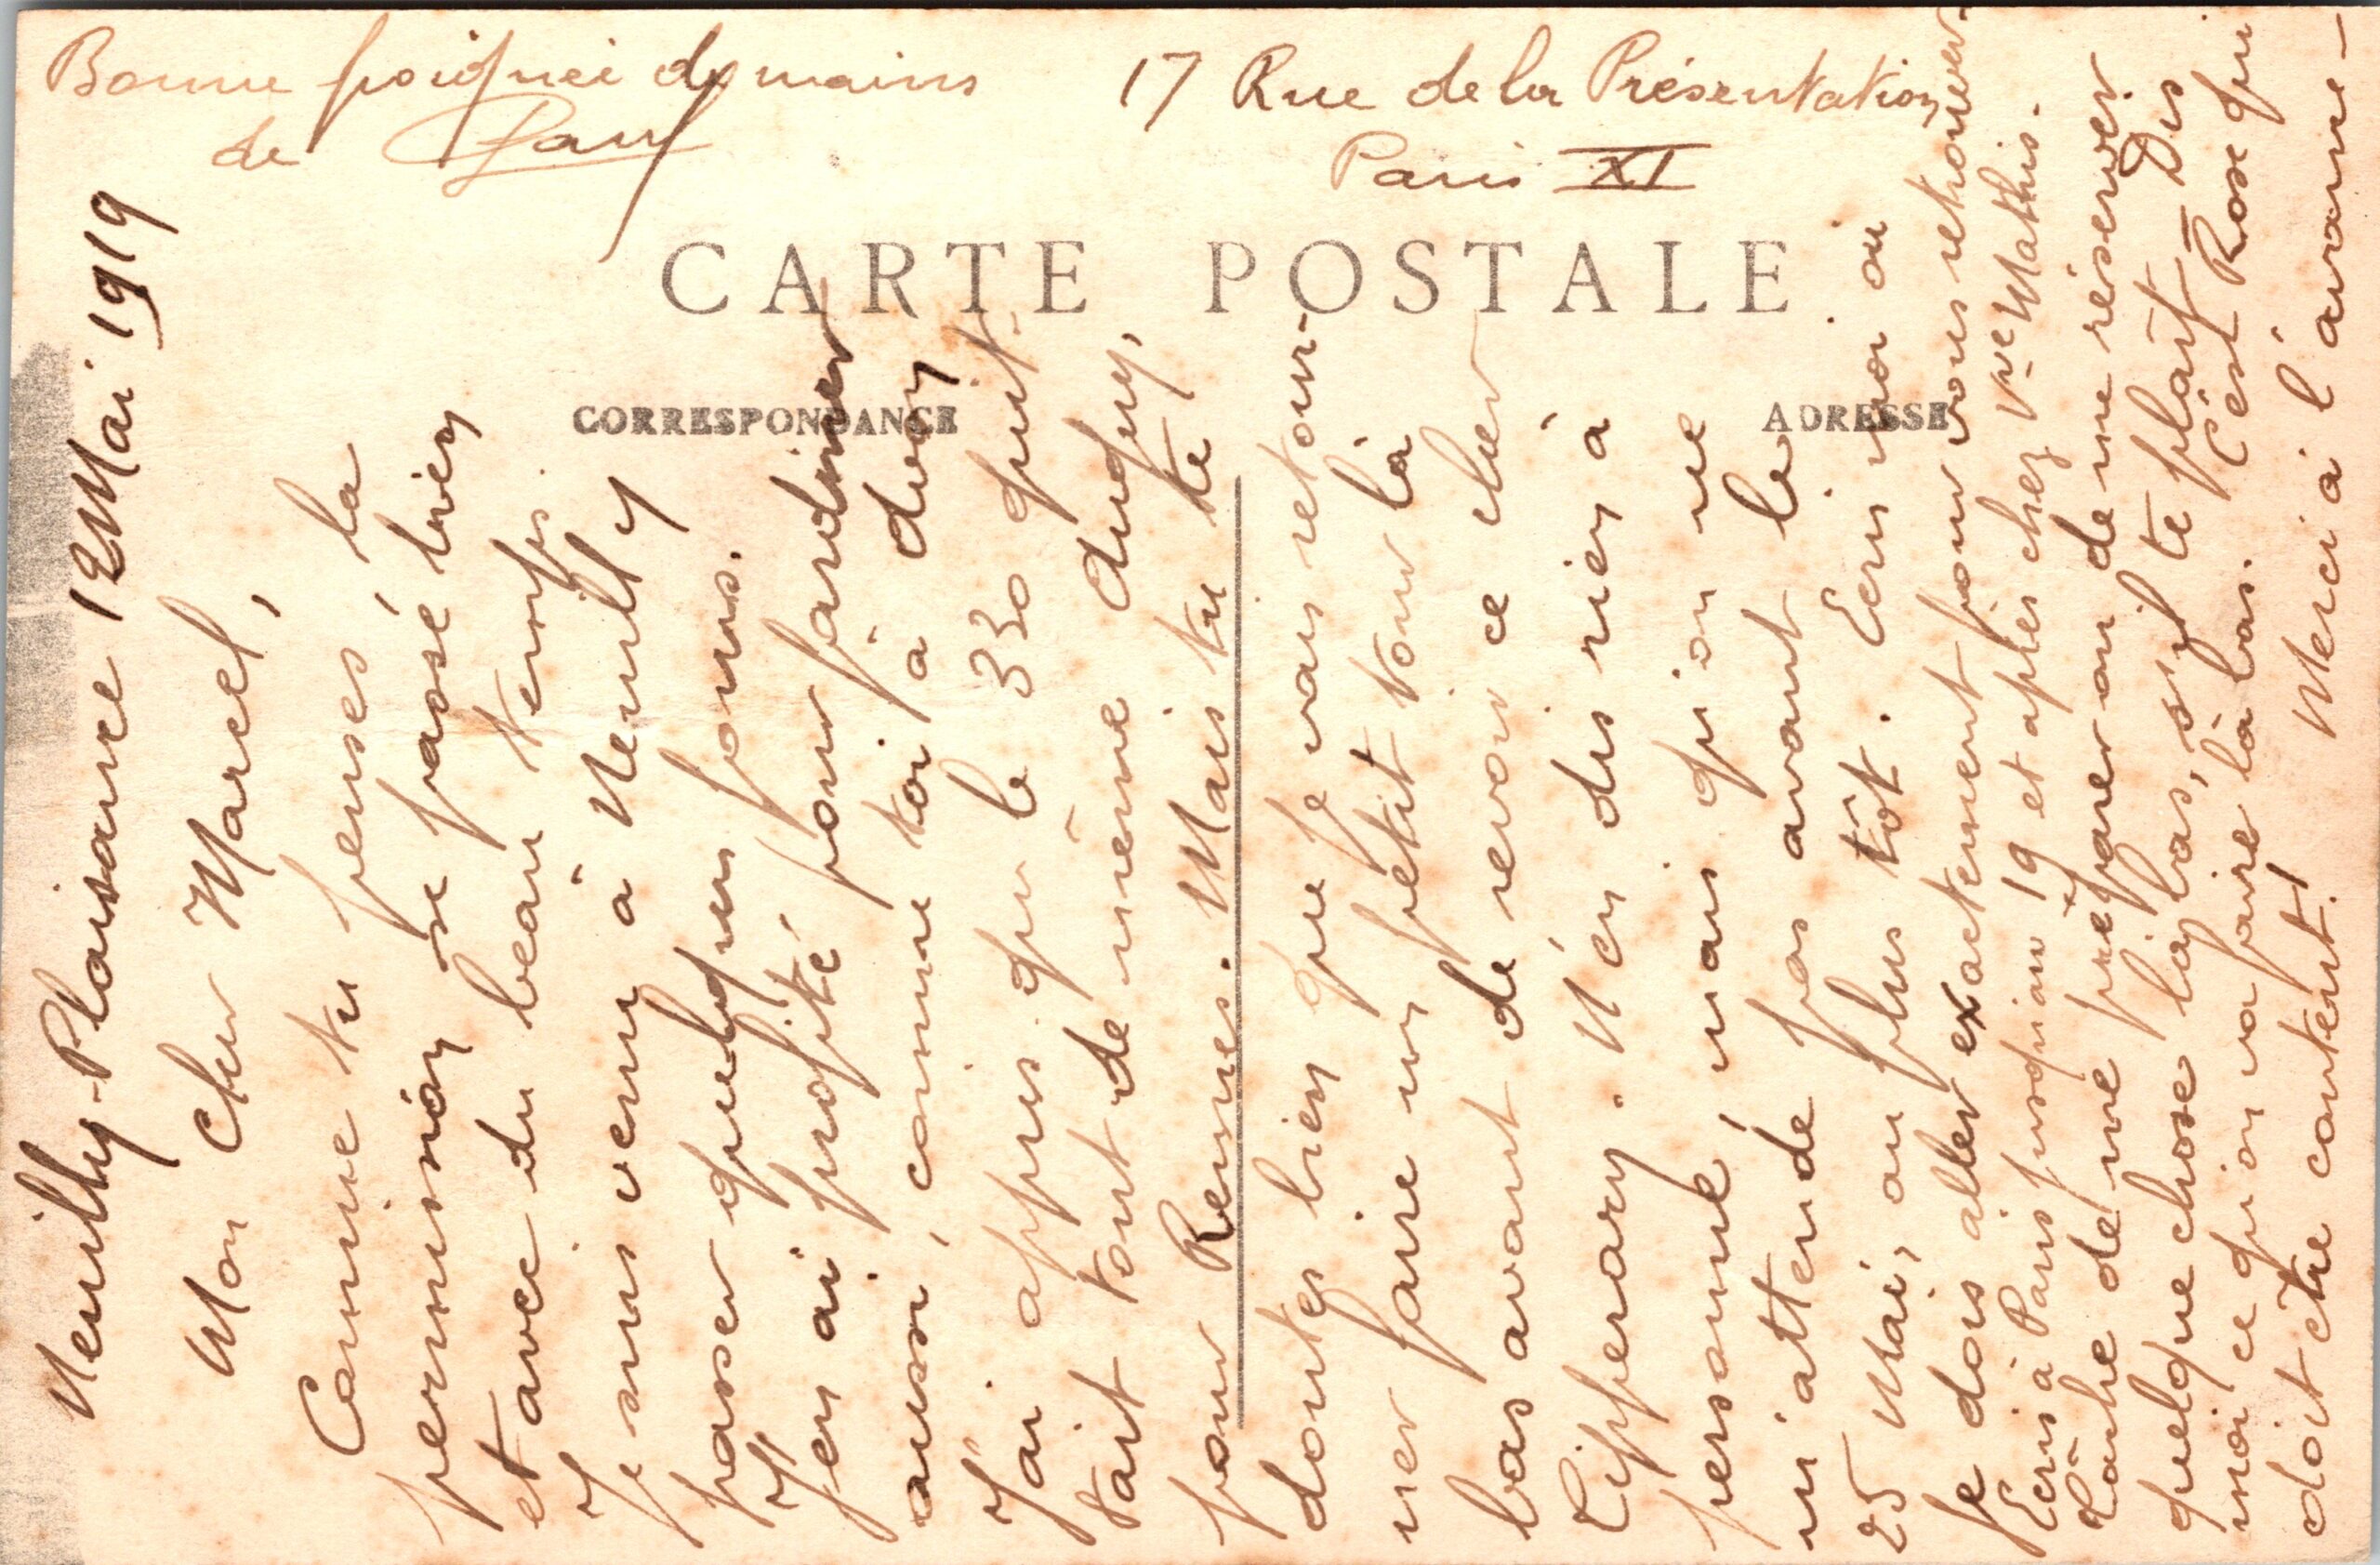 Neuilly-Plaisance 12 Mai 1919
Mon Cher Marcel,
Comme tu penses, la
permission se passe bien
et avec du beau temps.
Je suis venu à Neuilly
passer quelques jours.
J'en ai profité pour jardiner
aussi, comme toi à
J'ai appris que le 330 qui
tait tout de même Auguy,
pour Rennes. Mais tu te
doutes bien que je vais retour-
ner faire un petit tour là
bas avant de revoir ce cher
Tipperary. N'en dis rien à
personne, mais qu'on ne
m'attende pas avant le
25 Mai, au plus tôt. Ecris moi où
je dois aller exactement pour vous retrouver.
Ecris à Paris jusqu'au 19 et après chez Vve Mathis.
Tâche de me préparer ou de me réserver
quelque chose là bas, s'il te plaît. Dis
moi ce qu'on va faire là bas. C'est Rose qui
doit être contente! Merci à l'avance.
Bonne poignée de mains
de Paul
17 Rue de la Présentation
Paris XI
CARTE POSTALE
CORRESPONDANCE
ADRESSE